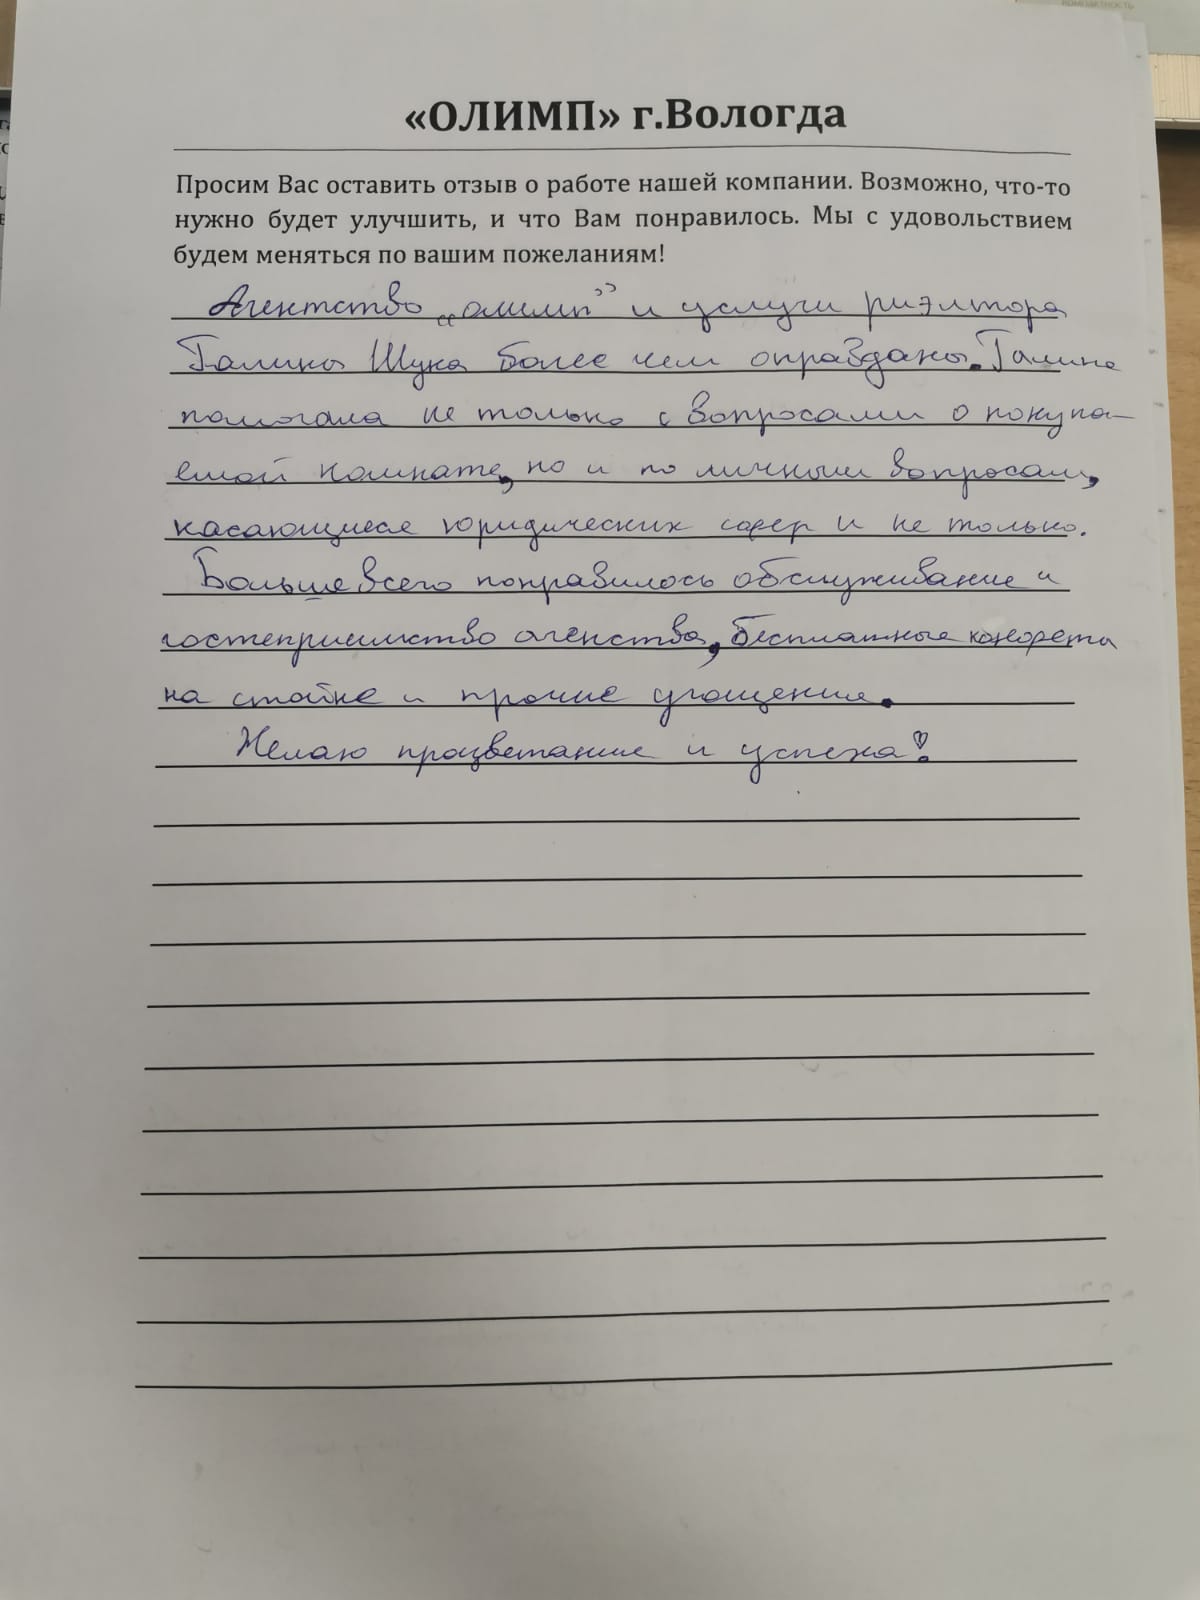 компактность
«ОЛИМП» г.Вологда
Просим Вас оставить отзыв о работе нашей компании. Возможно, что-то
нужно будет улучшить, и что Вам понравилось. Мы с удовольствием
будем меняться по вашим пожеланиям!
Агентство „олимп” и услуги риэлтора
Галины Щука более чем оправданы. Галина
помогала не только с вопросами о покупа-
емой комнате, но и по личным вопросам,
касающиеся юридических сфер и не только.
Больше всего понравилось обслуживание и
гостеприимство агенства, бесплатные конфеты
на стойке и прочие угощения.
Желаю процветание и успеха!